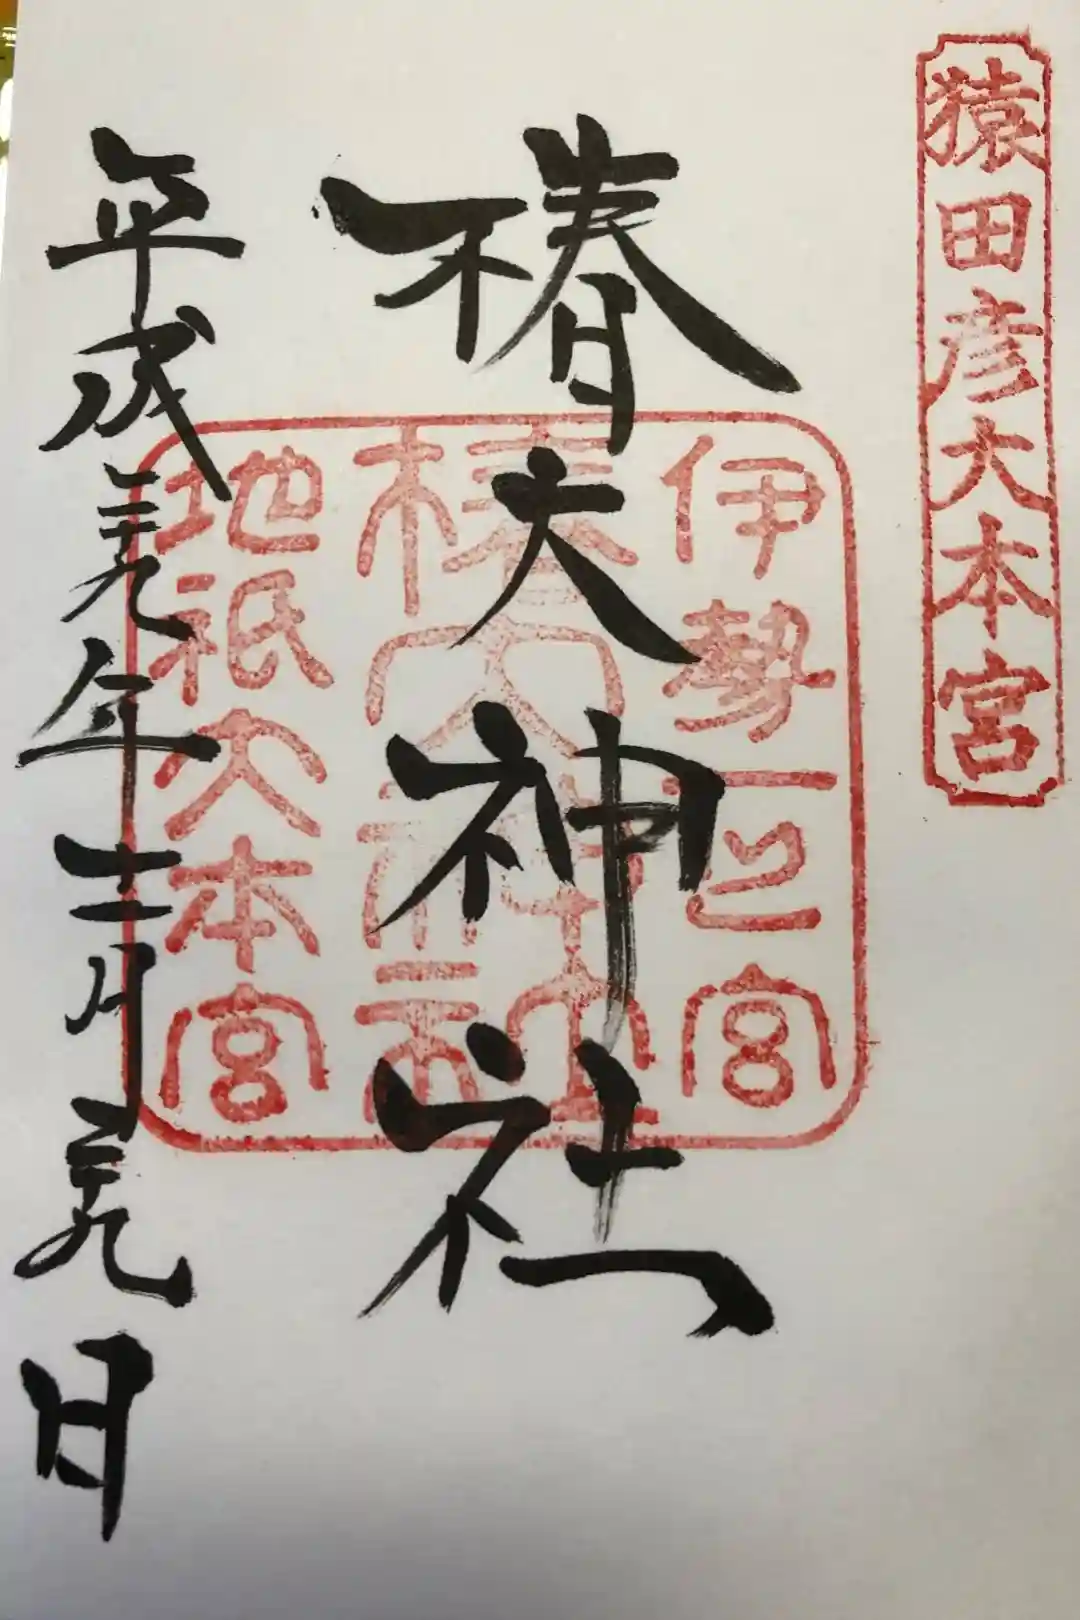 猿田彦大本宮
椿大神社
伊勢一之宮
椿大神社
地祇大本宮
平成二十九年十二月二十九日